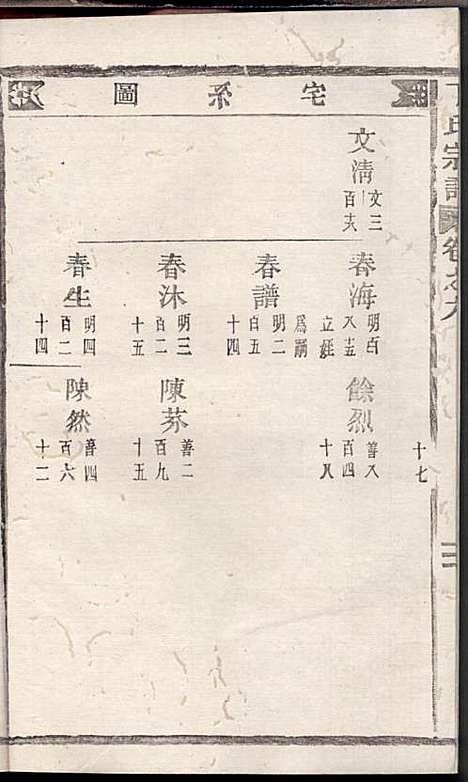 宅系圖
文清 文三百六
春海 明百八十五立經
春譜 爲嗣明二百五十四
春沐 明三百二十五
春生 明四百二十四
餘烈 善八百四十八
陳芬 善二百九十五
陳然 善四百六十二
氏宗譜
卷之九
十七